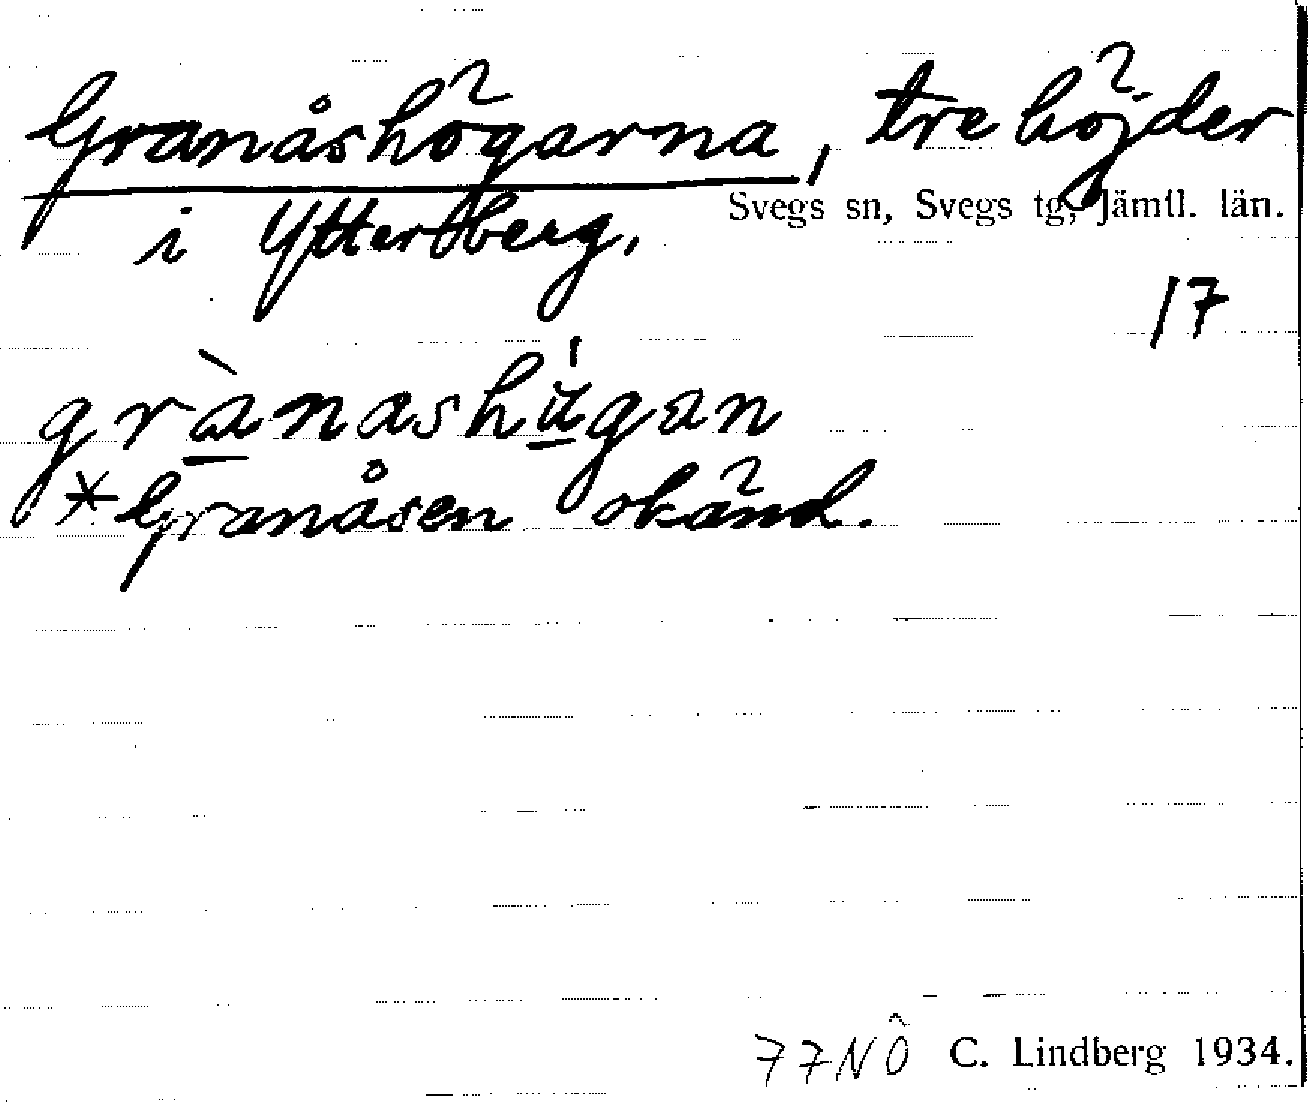 Granåshögarna, tre höjder
Svegs sn, Svegs tg, Jämtl. län.
i Ytterberg.
17
grànashúgan
*Granåsen okänd.
77NÖ C. Lindberg 1934.